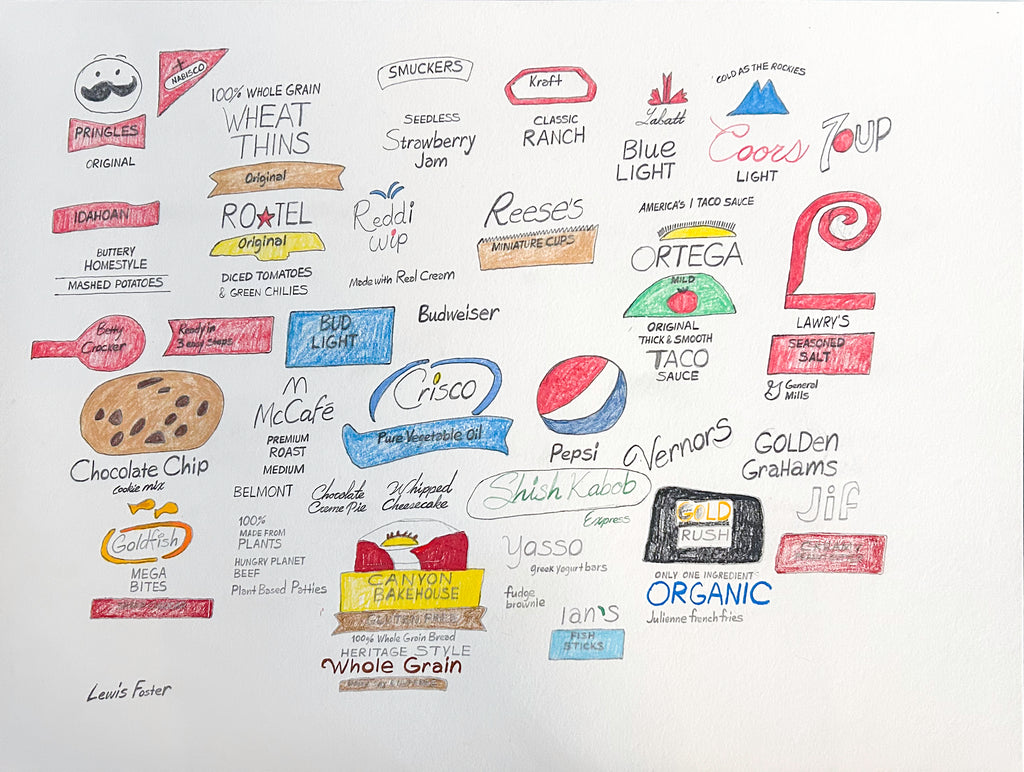 PRINGLES
ORIGINAL
NABISCO
100% WHOLE GRAIN
WHEAT
THINS
Original
SMUCKERS
SEEDLESS
Strawberry
Jam
Kraft
CLASSIC
RANCH
Labatt
Blue
LIGHT
COLD AS THE ROCKIES
Coors
LIGHT
7UP
IDAHOAN
BUTTERY
HOMESTYLE
MASHED POTATOES
RO★TEL
Original
DICED TOMATOES
& GREEN CHILIES
Reddi
wip
Made with Real Cream
Reese's
MINIATURE CUPS
AMERICA'S 1 TACO SAUCE
ORTEGA
MILD
ORIGINAL
THICK & SMOOTH
TACO
SAUCE
LAWRY'S
SEASONED
SALT
G General
Mills
Betty
Crocker
Ready in
3 easy steps
BUD
LIGHT
Budweiser
Chocolate Chip
cookie mix
M
McCafé
PREMIUM
ROAST
MEDIUM
Crisco
Pure Vegetable Oil
Pepsi
Vernors
GOLDen
GraHams
BELMONT
Chocolate
Creme Pie
Whipped
Cheesecake
Shish Kabob
Express
GOLD
RUSH
Jif
CREAMY
Goldfish
MEGA
BITES
100%
MADE FROM
PLANTS
HUNGRY PLANET
BEEF
Plant Based Patties
CANYON
BAKEHOUSE
GLUTEN FREE
100% Whole Grain Bread
HERITAGE STYLE
Whole Grain
Yasso
greek yogurt bars
fudge
brownie
Ian's
FISH
STICKS
ONLY ONE INGREDIENT
ORGANIC
Julienne french fries
Lewis Foster